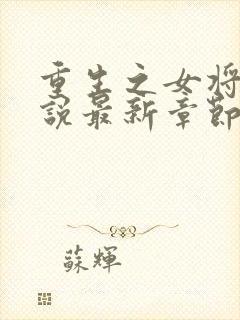 重生之女将
説最新章節
蘇輝